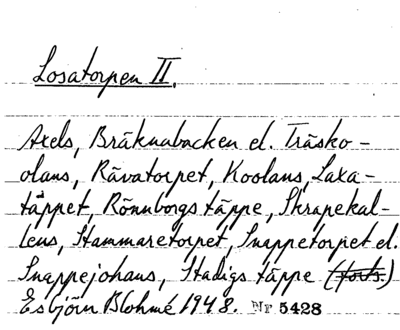 Losatorpen II.
Axels, Bräknabacken el. Träsko-
olans, Rävatorpet, Koolans, Laxa-
täppet, Rönnborgs täppe, Skrapekal-
lens, Stammaretorpet, Snappetorpet el.
Snappejohans, Stadigs täppe (forts.)
Esbjörn Blohmé 1948. Nr 5428